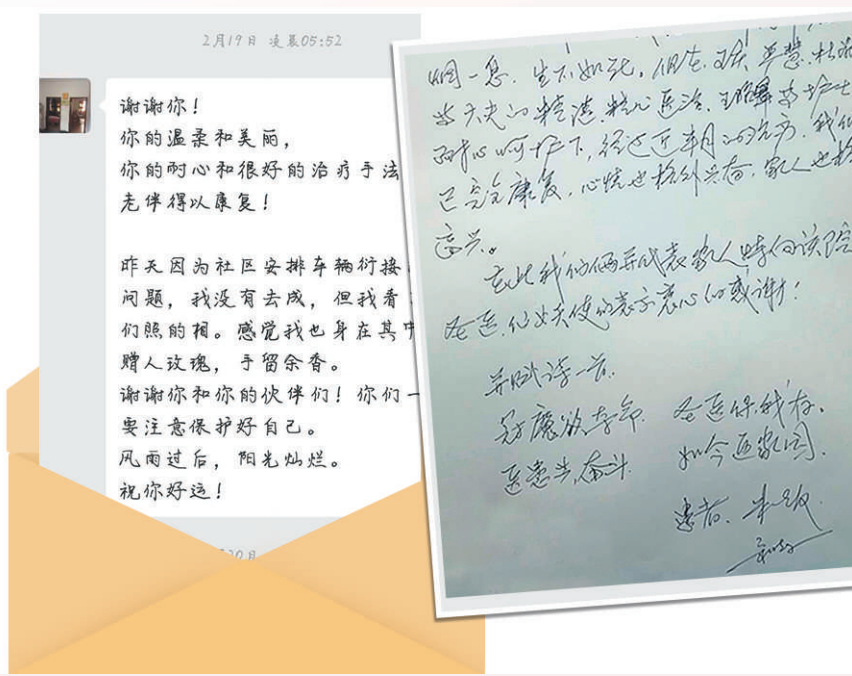 2月19日 凌晨05:52
谢谢你！
你的温柔和美丽，
你的耐心和很好的治疗手法
老伴得以康复！
昨天因为社区安排车辆衔接
问题，我没有去成，但我看
们照的相。感觉我也身在其中
赠人玫瑰，手留余香。
谢谢你和你的伙伴们！你们一
要注意保护好自己。
风雨过后，阳光灿烂。
祝你好运！
20日
一息，生不如死，但在
大夫的精湛、精心医治
耐心呵护下，经过近半月的治疗，我们
已完全康复，心情也格外兴奋，家人也格
高兴。
在此我们俩并代表家人特向该院
天使们表示衷心的感谢！
并赋诗一首
病魔欲夺命 白医保我存。
医患共奋斗 如今返家园。
患者